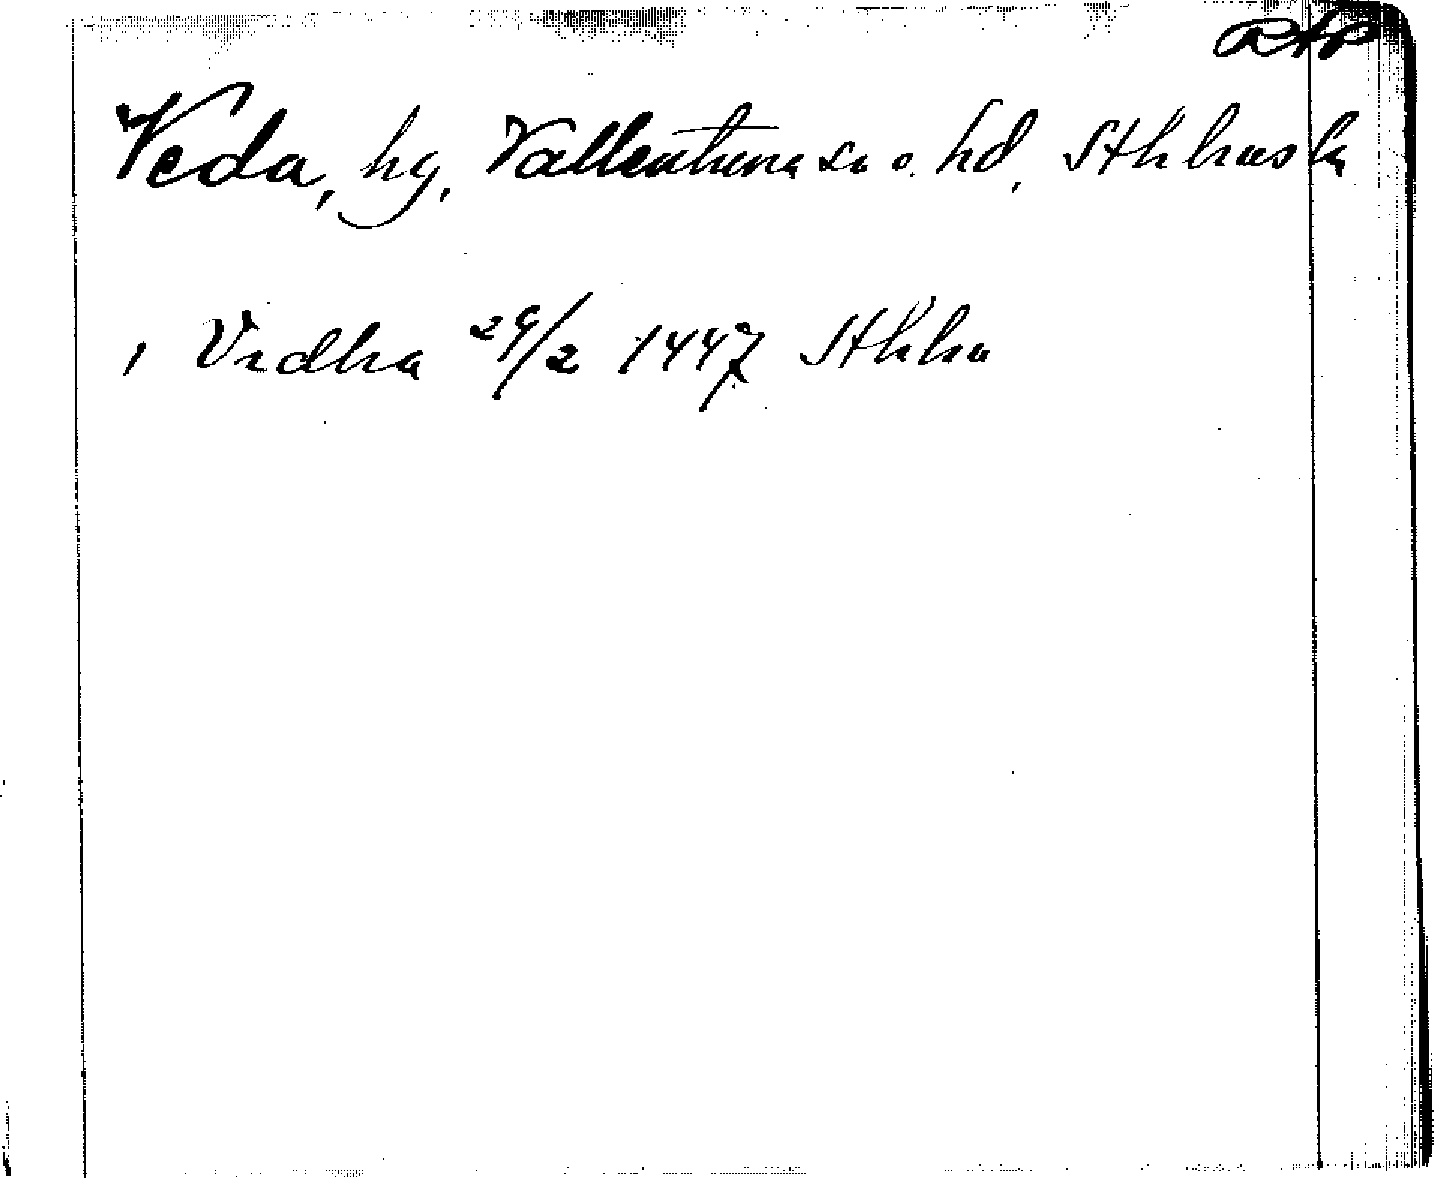 RAP
Veda, hg, Vallentuna sn o. hd, Sthlms lä
, Vidha 29/2 1447 Sthlm